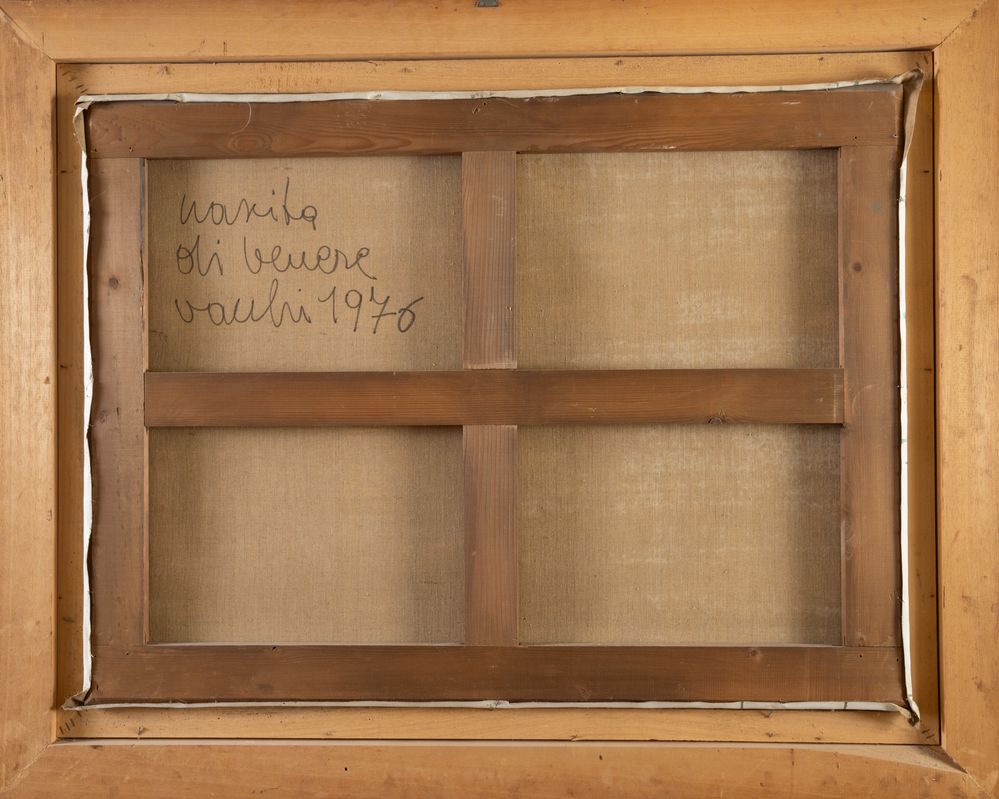 nascita
di venere
vacchi 1976